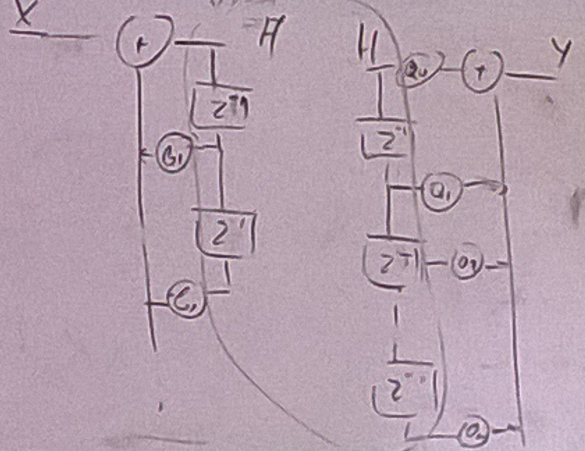 X + H
z⁻¹
B₁
z⁻¹
C₁
H a₀ + Y
z⁻¹
a₁
z⁻¹
z⁻¹